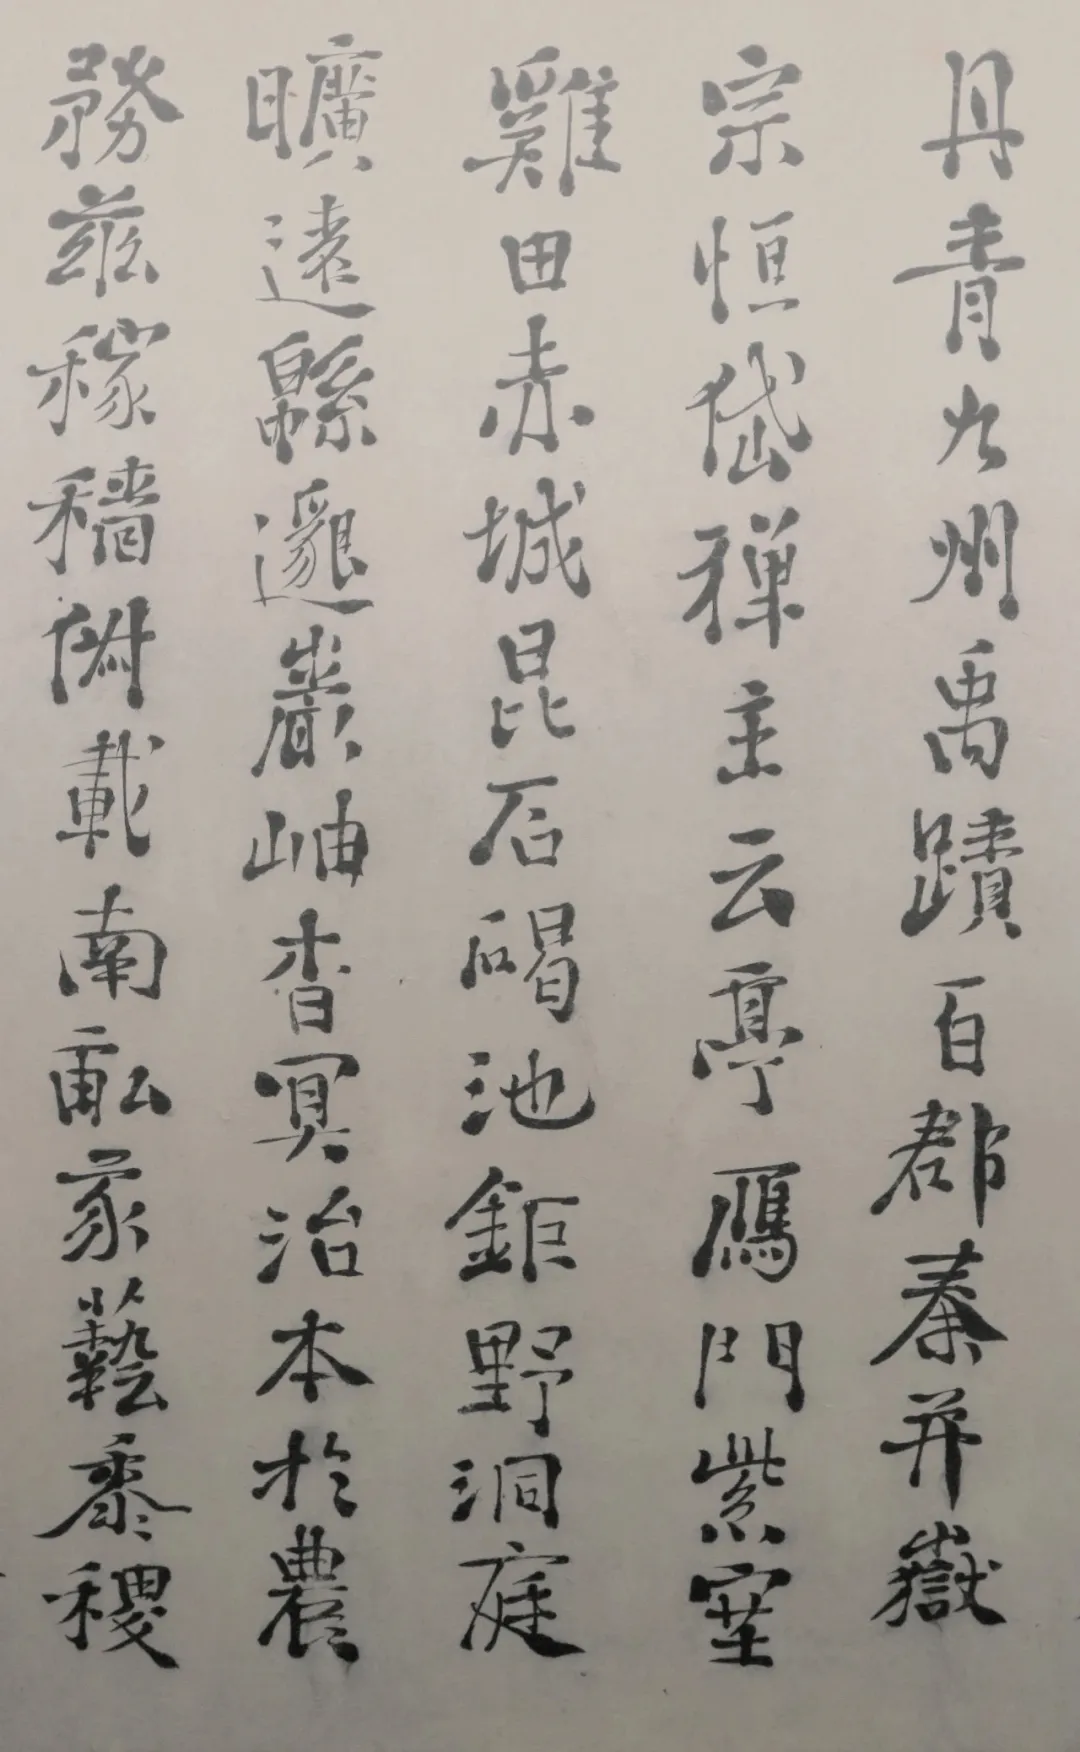 丹青九州禹蹟百郡秦并嶽
宗恒岱禪主云亭鴈門紫塞
雞田赤城昆石碣池鉅野洞庭
曠遠緜邈巖岫杳冥治本於農
務茲稼穡俶載南畝我藝黍稷